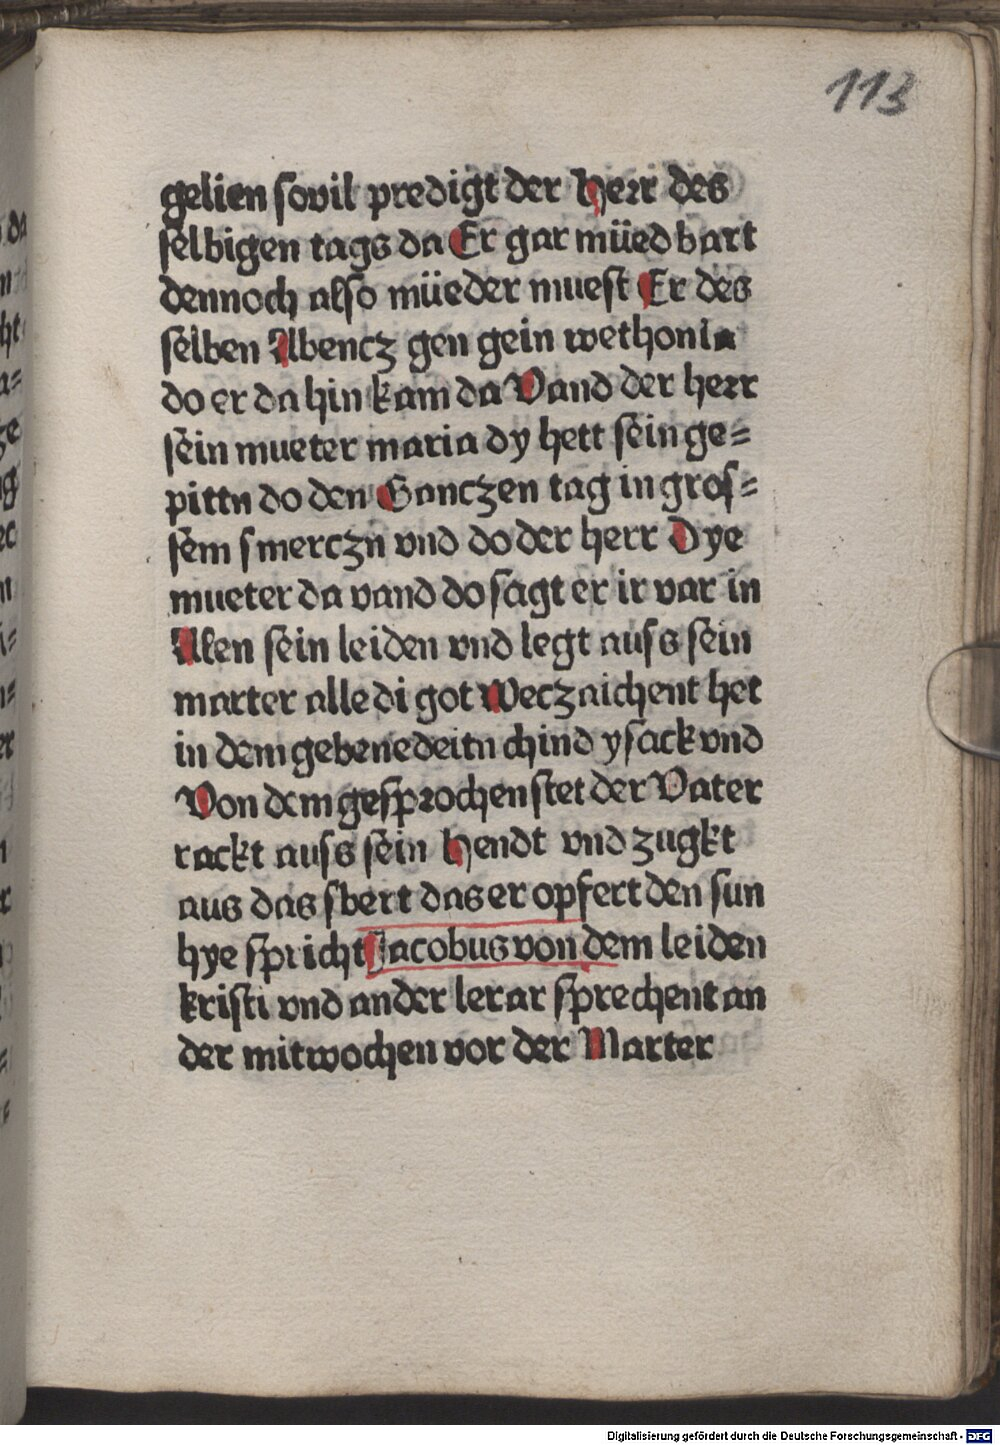 113
gelien sovil predigt der Herr des
selbigen tags da Er gar müed bart
dennoch also müeder muest Er des
selben Abencz gen gein wethonia
do er da hin kam da Vand der herr
sein mueter maria dy hett sein ge=
pittn do den Ganczen tag in gros=
sem smerczn vnd do der herr Dye
mueter da vand do sagt er ir var in
Allen sein leiden vnd legt auss sein
marter alle di got Weczaichent het
in dem gebenedeitn chind ysack vnd
Von dem gesprochen stet der Vater
rackt auss sein Hendt vnd zugkt
aus das sbert das er opfert den sun
hye spricht Jacobus von dem leiden
kristi vnd ander lerar sprechent an
der mitwochen vor der Marter
Digitalisierung gefördert durch die Deutsche Forschungsgemeinschaft - DFG